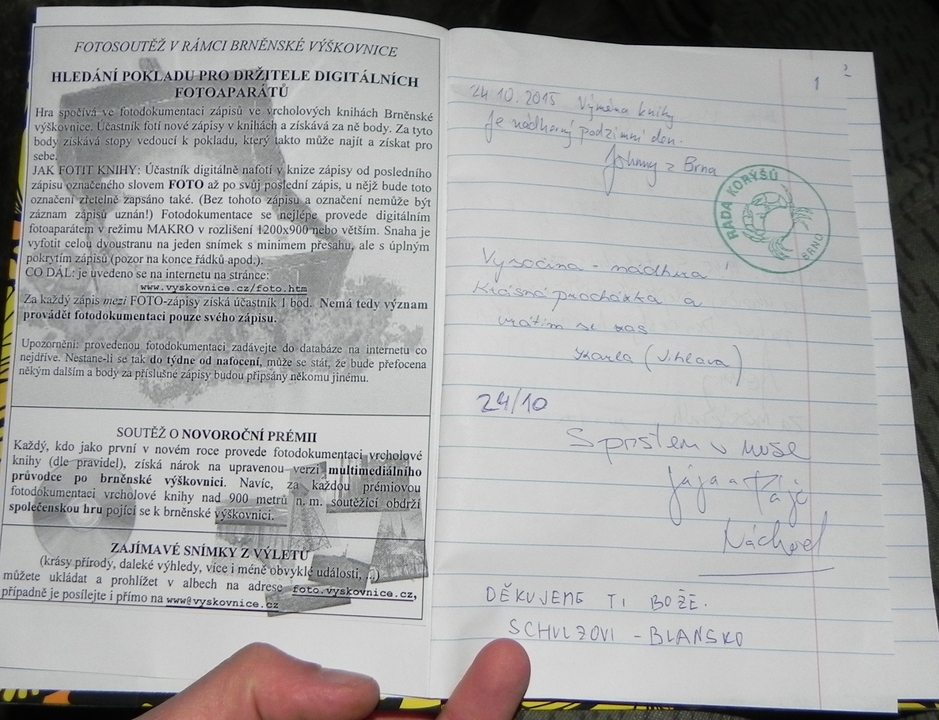 FOTOSOUTĚŽ V RÁMCI BRNĚNSKÉ VÝŠKOVNICE
HLEDÁNÍ POKLADU PRO DRŽITELE DIGITÁLNÍCH
FOTOAPARÁTŮ
Hra spočívá ve fotodokumentaci zápisů ve vrcholových knihách Brněnské
výškovnice. Účastník fotí nové zápisy v knihách a získává za ně body. Za tyto
body získává stopy vedoucí k pokladu, který takto může najít a získat pro
sebe.
JAK FOTIT KNIHY: Účastník digitálně nafotí v knize zápisy od posledního
zápisu označeného slovem FOTO až po svůj poslední zápis, u nějž bude toto
označení zřetelně zapsáno také. (Bez tohoto zápisu a označení nemůže být
záznam zápisů uznán!) Fotodokumentace se nejlépe provede digitálním
fotoaparátem v režimu MAKRO v rozlišení 1200x900 nebo větším. Snaha je
vyfotit celou dvoustranu na jeden snímek s minimem přesahu, ale s úplným
pokrytím zápisů (pozor na konce řádků apod.).
CO DÁL: je uvedeno se na internetu na stránce:
www.vyskovnice.cz/foto.htm
Za každý zápis mezi FOTO-zápisy získá účastník 1 bod. Nemá tedy význam
provádět fotodokumentaci pouze svého zápisu.
Upozornění: provedenou fotodokumentaci zadávejte do databáze na internetu co
nejdříve. Nestane-li se tak do týdne od nafocení, může se stát, že bude přefocena
někým dalším a body za příslušné zápisy budou připsány někomu jinému.
SOUTĚŽ O NOVOROČNÍ PRÉMII
Každý, kdo jako první v novém roce provede fotodokumentaci vrcholové
knihy (dle pravidel), získá nárok na upravenou verzi multimediálního
průvodce po brněnské výškovnici. Navíc, za každou prémiovou
fotodokumentaci vrcholové knihy nad 900 metrů n. m. soutěžící obdrží
společenskou hru pojící se k brněnské výškovnici.
ZAJÍMAVÉ SNÍMKY Z VÝLETŮ
(krásy přírody, daleké výhledy, více i méně obvyklé události, ...)
můžete ukládat a prohlížet v albech na adrese foto.vyskovnice.cz,
případně je posílejte i přímo na www@vyskovnice.cz
1 2
24.10.2015 Výměna knihy
Je nádherný podzimní den.
Johnny z Brna
RADA KORÝŠŮ
BRNO
Vysočina - nádhera!
Krásná procházka a
vrátím se zas
Karla (Jihlava)
24/10
S prstem v nose
Jája a Pája
Náchod
DĚKUJEME TI BOŽE.
SCHULZOVI - BLANSKO